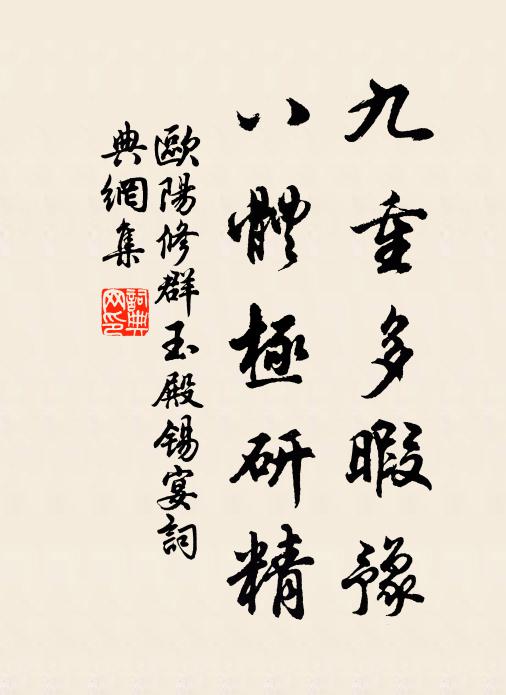 九重多暇豫
八體極研精
歐陽修群玉殿錫宴詞
典網集
詞典網印